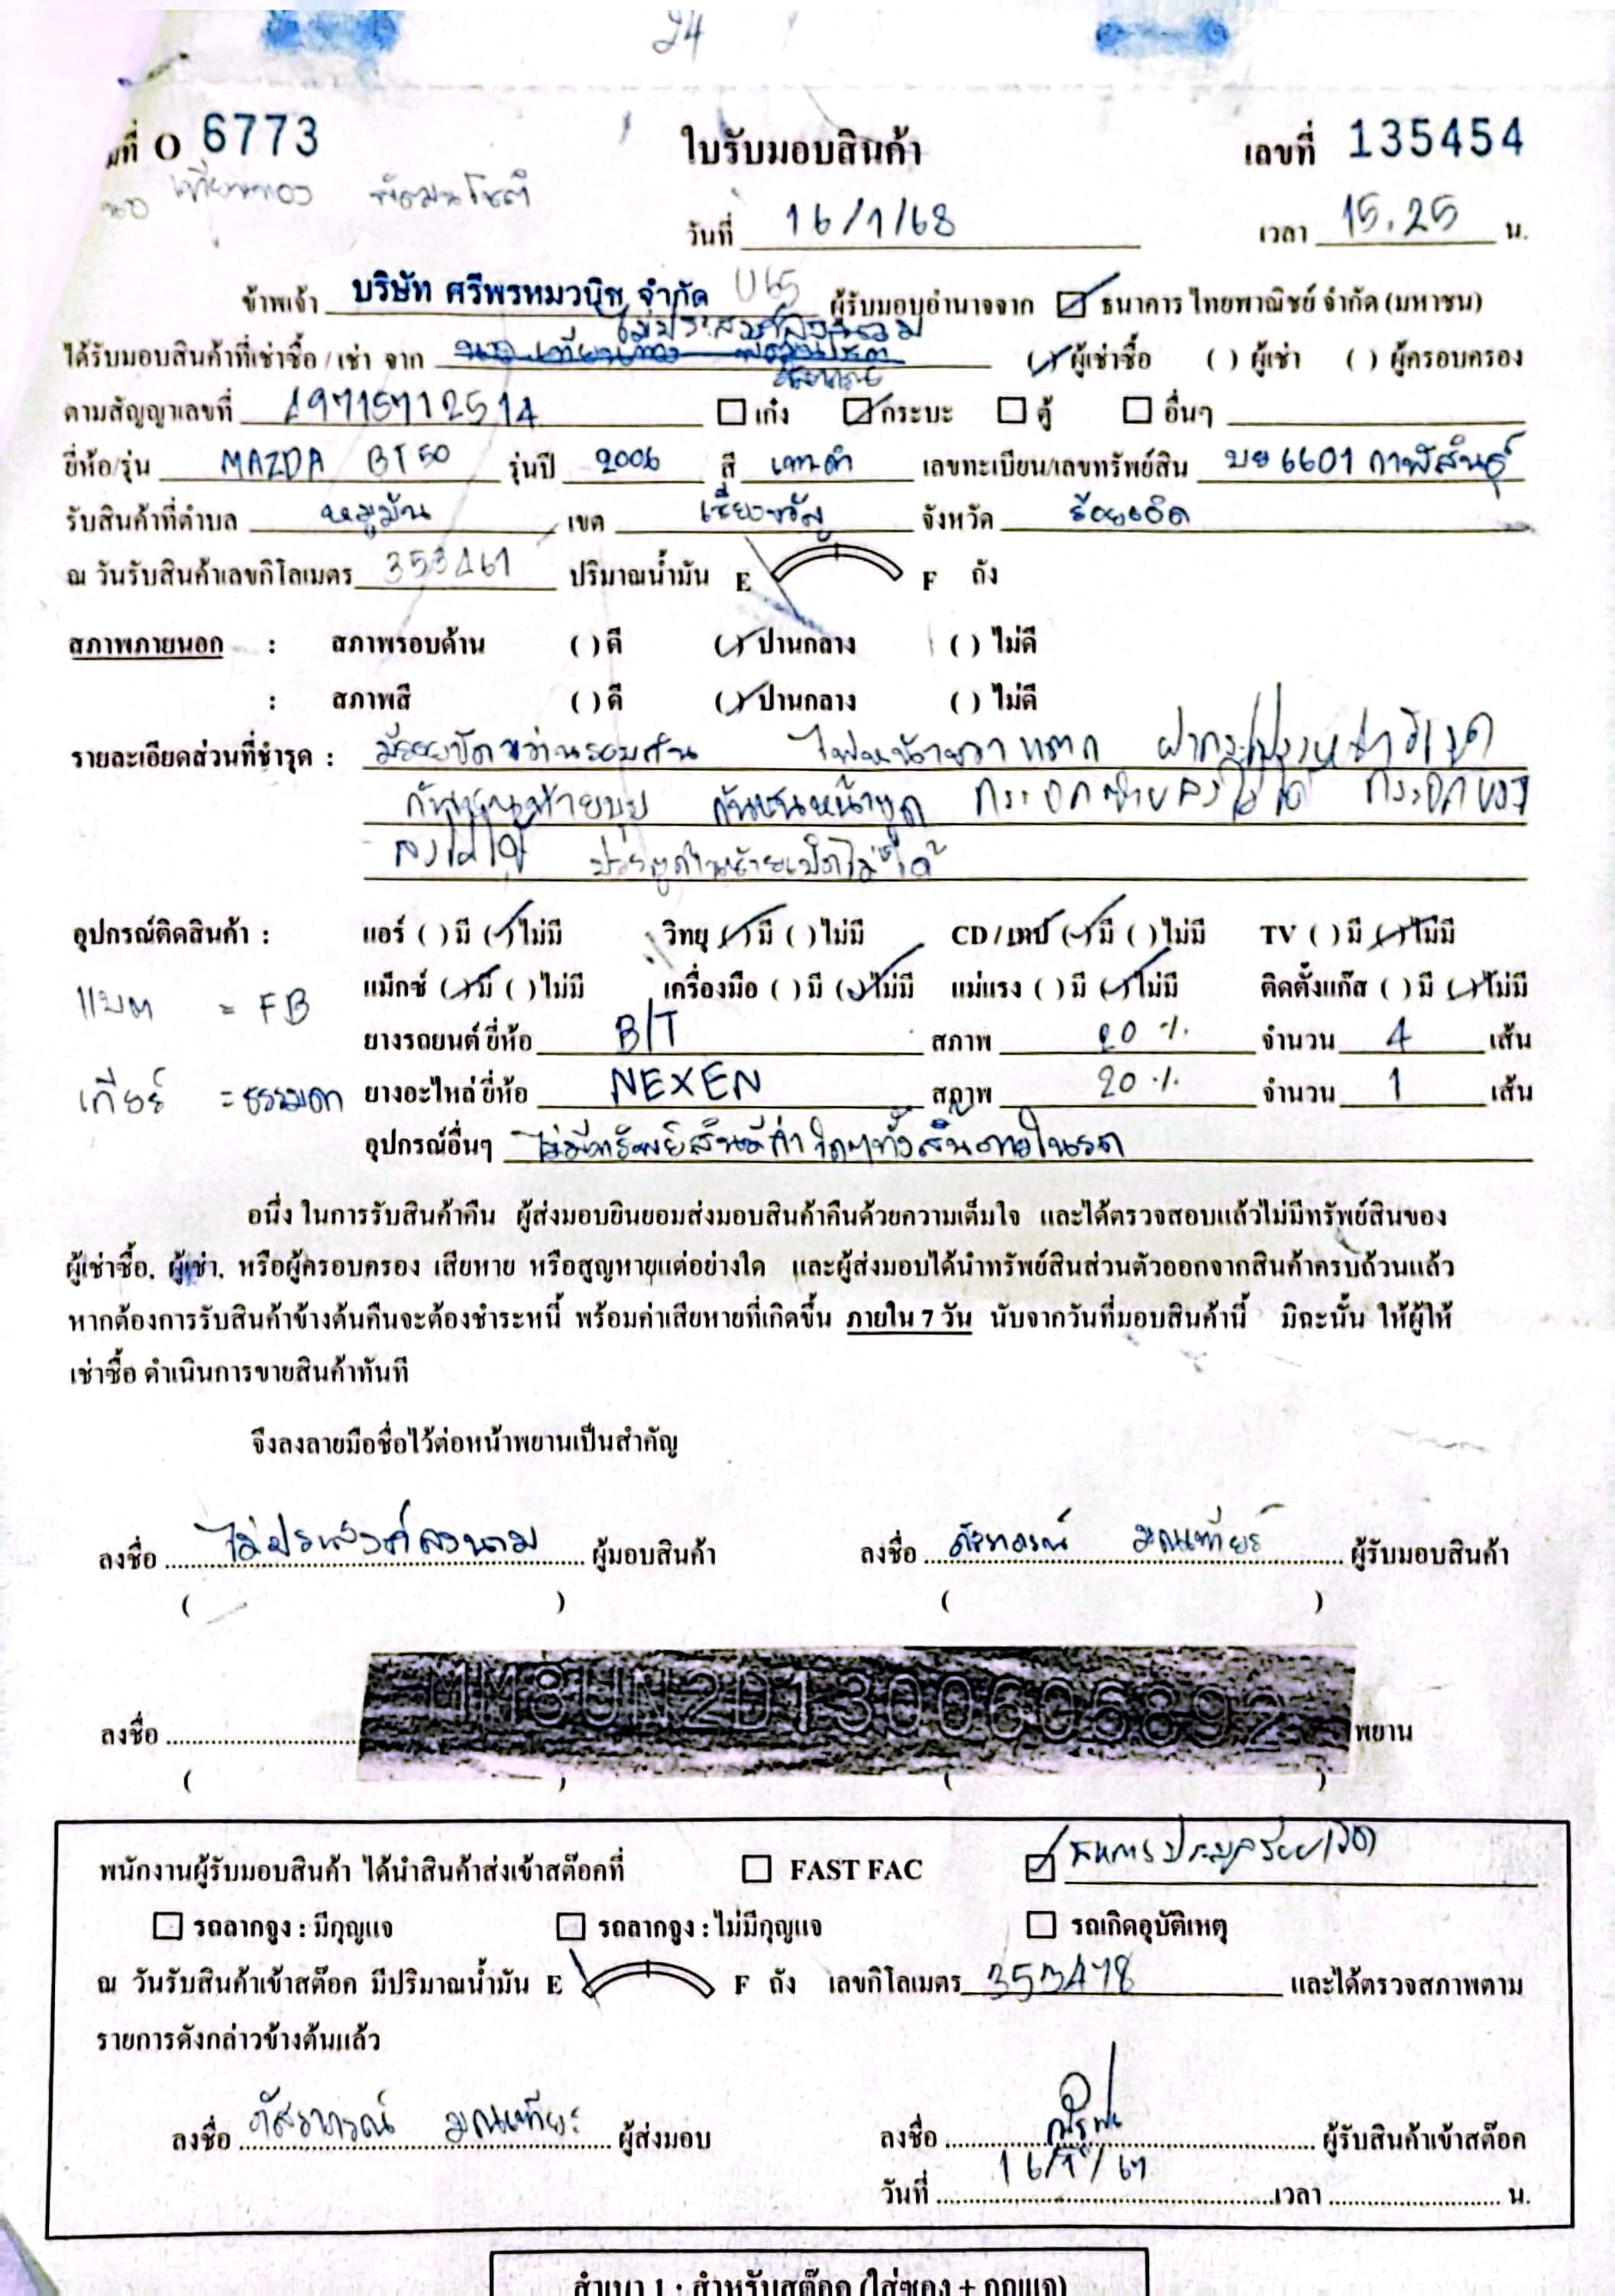 24
มที่ O 6773 ใบรับมอบสินค้า เลขที่ 135454
วันที่ 16/1/68 เวลา 15.25 น.
ข้าพเจ้า บริษัท ศรีพรหมวนิช จำกัด ผู้รับมอบอำนาจจาก ธนาคาร ไทยพาณิชย์ จำกัด (มหาชน)
ไม่ประสงค์ลงนาม
ได้รับมอบสินค้าที่เช่าซื้อ / เช่า จาก (✓) ผู้เช่าซื้อ ( ) ผู้เช่า ( ) ผู้ครอบครอง
ตามสัญญาเลขที่ ☐ เก๋ง ☑ กระบะ ☐ ตู้ ☐ อื่นๆ
ยี่ห้อ/รุ่น MAZDA BT50 รุ่นปี 2006 สี เทาดำ เลขทะเบียน/เลขทรัพย์สิน บย 6601 กาฬสินธุ์
รับสินค้าที่ตำบล หมูม้น เขต เชียงขวัญ จังหวัด ร้อยเอ็ด
ณ วันรับสินค้าเลขกิโลเมตร 353461 ปริมาณน้ำมัน E F ถัง
สภาพภายนอก : สภาพรอบด้าน ( ) ดี (✓) ปานกลาง ( ) ไม่ดี
: สภาพสี ( ) ดี (✓) ปานกลาง ( ) ไม่ดี
รายละเอียดส่วนที่ชำรุด : มีรอยขีดข่วนรอบคัน ไฟหน้าขวาแตก
กันชนท้ายบุบ กันชนหน้าบุด กระจกซ้ายลงไม่ได้ กระจกขวา
ลงไม่ได้ ประตูด้านซ้ายเปิดไม่ได้
อุปกรณ์ติดสินค้า : แอร์ ( ) มี (✓) ไม่มี วิทยุ (✓) มี ( ) ไม่มี CD / เทป (✓) มี ( ) ไม่มี TV ( ) มี (✓) ไม่มี
แม็กซ์ (✓) มี ( ) ไม่มี เครื่องมือ ( ) มี (✓) ไม่มี แม่แรง ( ) มี (✓) ไม่มี ติดตั้งแก๊ส ( ) มี (✓) ไม่มี
แบต = FB
ยางรถยนต์ ยี่ห้อ B/T สภาพ 20 % จำนวน 4 เส้น
เกียร์ = ธรรมดา ยางอะไหล่ ยี่ห้อ NEXEN สภาพ 20 % จำนวน 1 เส้น
อุปกรณ์อื่นๆ ไม่มีทรัพย์สินมีค่าใดๆทั้งสิ้นภายในรถ
อนึ่ง ในการรับสินค้าคืน ผู้ส่งมอบยินยอมส่งมอบสินค้าคืนด้วยความเต็มใจ และได้ตรวจสอบแล้วไม่มีทรัพย์สินของ
ผู้เช่าซื้อ, ผู้เช่า, หรือผู้ครอบครอง เสียหาย หรือสูญหายแต่อย่างใด และผู้ส่งมอบได้นำทรัพย์สินส่วนตัวออกจากสินค้าครบถ้วนแล้ว
หากต้องการรับสินค้าข้างต้นคืนจะต้องชำระหนี้ พร้อมค่าเสียหายที่เกิดขึ้น ภายใน 7 วัน นับจากวันที่มอบสินค้านี้ มิฉะนั้น ให้ผู้ให้
เช่าซื้อ ดำเนินการขายสินค้าทันที
จึงลงลายมือชื่อไว้ต่อหน้าพยานเป็นสำคัญ
ลงชื่อ ไม่ประสงค์ลงนาม ผู้มอบสินค้า ลงชื่อ ภัสราภรณ์ มณเฑียร ผู้รับมอบสินค้า
( ) ( )
MM8UN2D1300606892
ลงชื่อ พยาน
( ) ( )
พนักงานผู้รับมอบสินค้า ได้นำสินค้าส่งเข้าสต๊อคที่ ☐ FAST FAC ☑ สหการประมูลร้อยเอ็ด
☐ รถลากจูง : มีกุญแจ ☐ รถลากจูง : ไม่มีกุญแจ ☐ รถเกิดอุบัติเหตุ
ณ วันรับสินค้าเข้าสต๊อค มีปริมาณน้ำมัน E F ถัง เลขกิโลเมตร 353478 และได้ตรวจสภาพตาม
รายการดังกล่าวข้างต้นแล้ว
ลงชื่อ ภัสราภรณ์ มณเฑียร ผู้ส่งมอบ ลงชื่อ ผู้รับสินค้าเข้าสต๊อค
วันที่ 16/1/67 เวลา น.
สำเนา 1 : สำหรับสต๊อค (ใส่ซอง + กุญแจ)